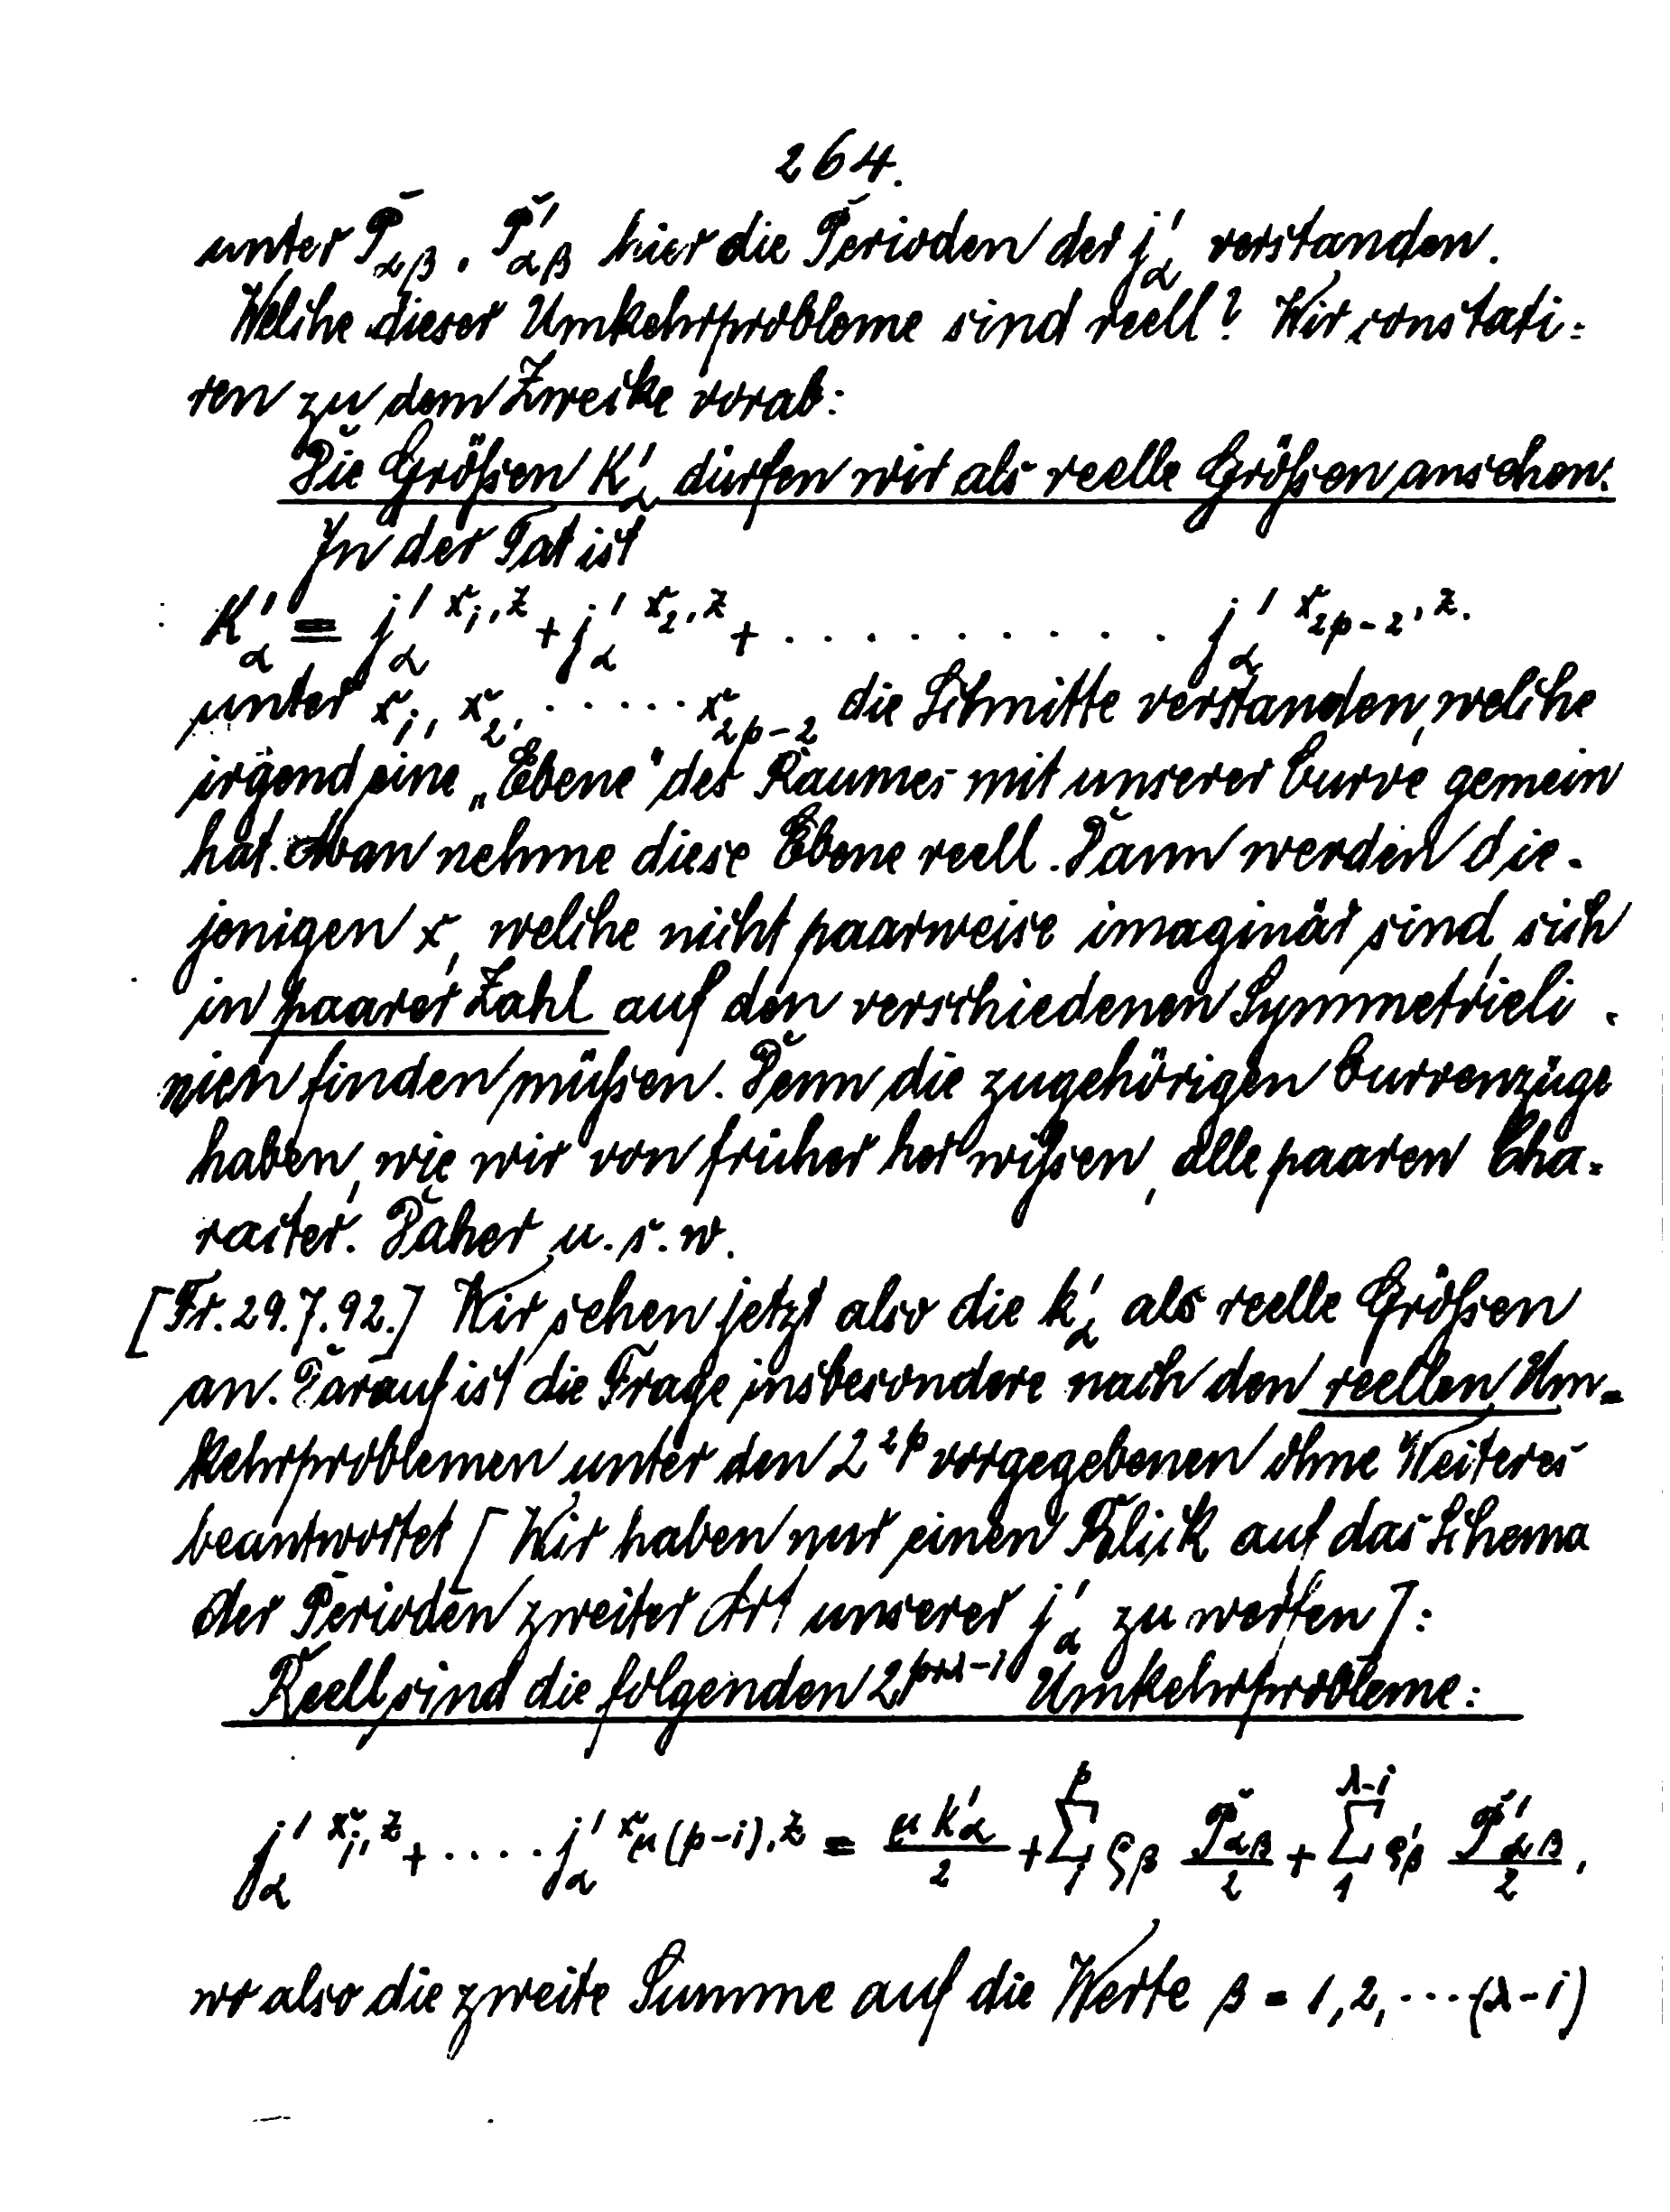 264.
unter P_{αβ}, P'_{αβ} hier die Perioden der j'_α verstanden.
Welche dieser Umkehrprobleme sind reell? Wir constati=
ren zu dem Zwecke vorab:
Die Größen K'_α dürfen wir als reelle Größen ansehen.
In der Tat ist
K'_α = j'_α^{x_1, z} + j'_α^{x_2, z} + . . . . . . . . . . j'_α^{x_{2p-2}, z}.
unter x_1, x_2, . . . . . x_{2p-2} die Schnitte verstanden, welche
irgend eine „Ebene“ des Raumes mit unserer Curve gemein
hat. Man nehme diese Ebene reell. Dann werden die-
jenigen x, welche nicht paarweise imaginär sind, sich
in paarer Zahl auf den verschiedenen Symmetrieli-
nien finden müßen. Denn die zugehörigen Curvenzüge
haben, wie wir von früher her wißen, alle paaren Cha-
racter. Daher u. s. w.
[Fr. 29.7.92.] Wir sehen jetzt also die k'_α als reelle Größen
an. Darauf ist die Frage insbesondere nach den reellen Um=
kehrproblemen unter den 2^{2p} vorgegebenen ohne Weiteres
beantwortet [Wir haben nur einen Blick auf das Schema
der Perioden zweiter Art unserer j'_α zu werfen]:
Reell sind die folgenden 2^{p+λ-1} Umkehrprobleme:
j'_α^{x_1, z} + . . . . j'_α^{x_{μ(p-1)}, z} = \frac{μ k'_α}{2} + \sum_1^p ς_β \frac{P_{αβ}}{2} + \sum_1^{λ-1} ς'_β \frac{P'_{αβ}}{2},
wo also die zweite Summe auf die Werte β = 1, 2, . . . (λ-1)